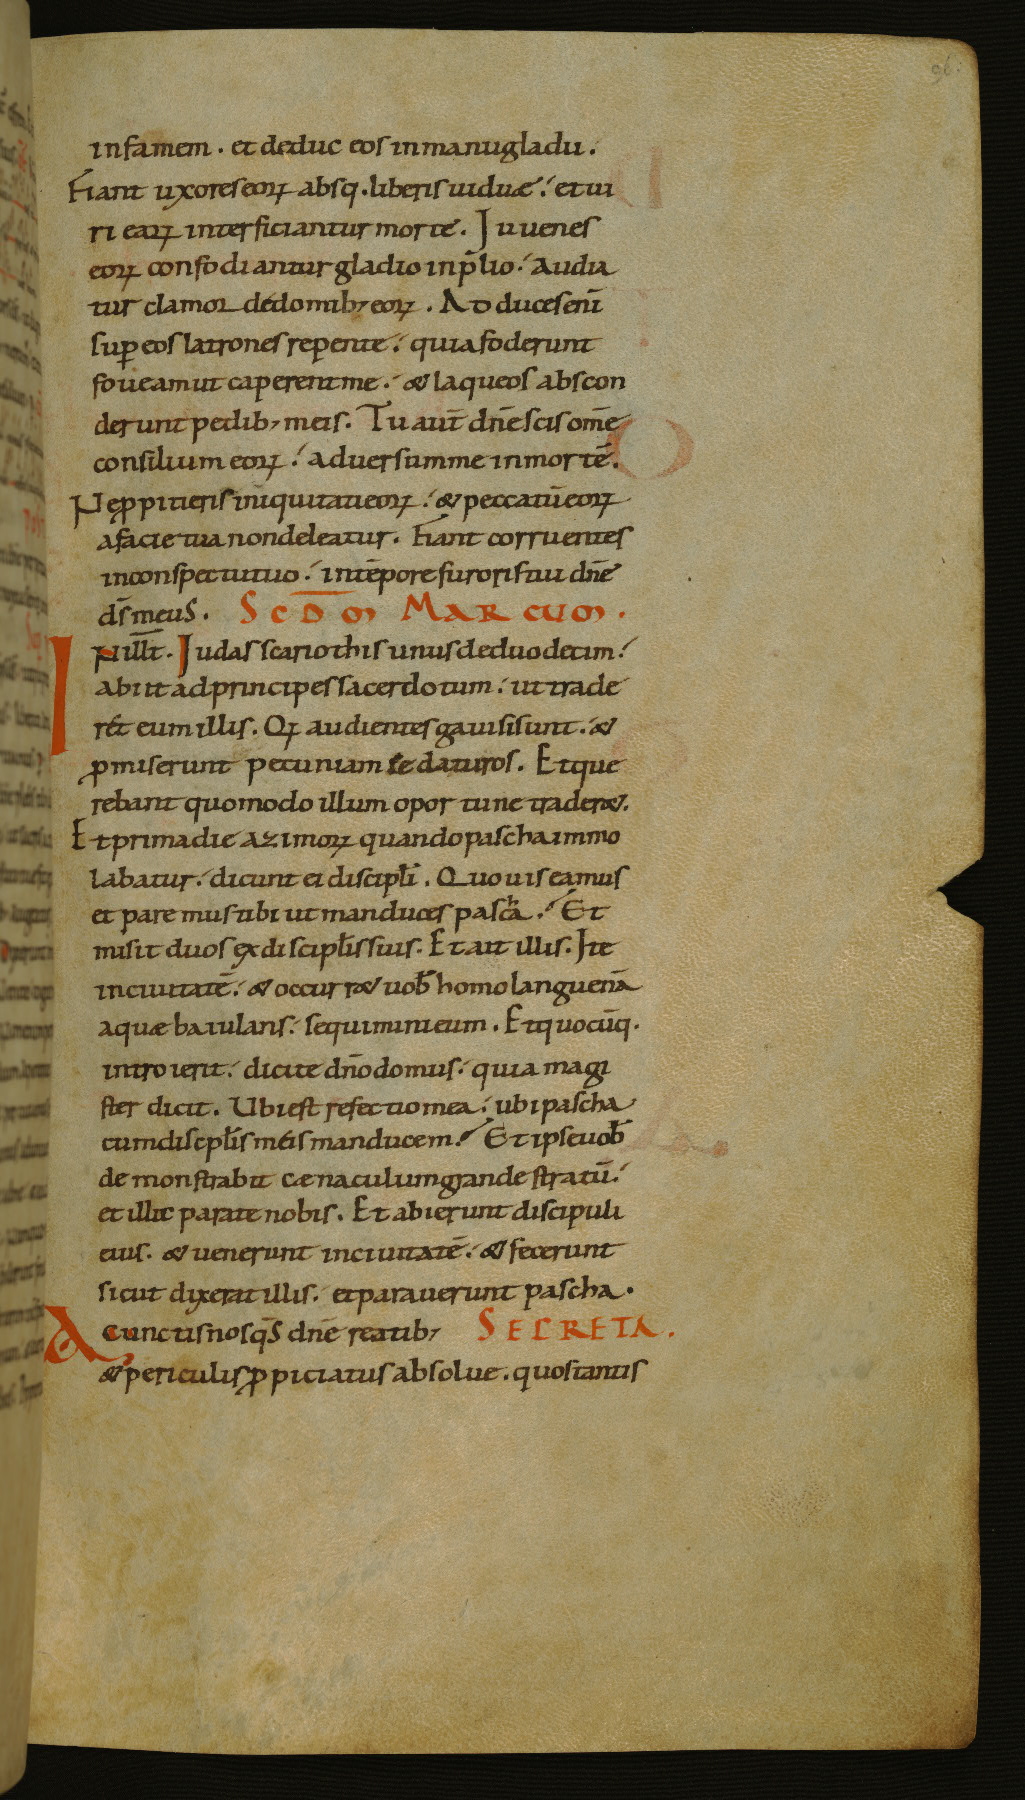 96.
in famem. et deduc eos in manu gladii.
Fiant uxores eoꝝ absq. liberis uiduæ. et ui
ri eaꝝ interficiantur morte. Iuuenes
eoꝝ confodiantur gladio in p̄lio. Audia
tur clamor de domib; eoꝝ. Adduces eni᷎m
sup eos latrones repente. quia foderunt
foueam ut caperent me. & laqueos abscon
derunt pedib; meis. Tu aut̄ dn̄e scis om̄e
consilium eoꝝ. aduersum me in morte᷎m.
Ne ꝓpitieris iniquitati eoꝝ. & peccatū eoꝝ
a facie tua non deleatur. Fiant corruentes
in conspectu tuo. in tēpore furoris tui dn̄e
ds̄ meus. SCDM MARCUM.
IN ill̄ t̄. Iudas scariothis unus de duodecim.
abiit ad principes sacerdotum. ut trade
ret eum illis. Qꝝ audientes gauisi sunt. &
ꝓmiserunt pecuniam se daturos. Et que
rebant quomodo illum oportune trader&.
Et prima die azimoꝝ quando pascha immo
labatur. dicunt ei discipl̄i. Quo uis eamus
et paremus tibi ut manduces pasch̄a. Et
misit duos ex discipl̄is suis. Et ait illis. Ite
in ciuitatē. & occurr& uob̄ homo languenā
aquæ baiulans. sequimini eum. Et quocūq.
introierit. dicite dn̄o domus. quia magi
ster dicit. Ubi est refectio mea. ubi pascha
cum discpl̄is meis manducem. Et ipse uob̄
demonstrabit cænaculum grande stratū.
et illic parate nobis. Et abierunt discipuli
eius. & uenerunt in ciuitatē. & fecerunt
sicut dixerat illis. et parauerunt pascha.
A cunctis nos qs̄ dn̄e reatib; SECRETA.
& periculis ꝓpiciatus absolue. quos tantis